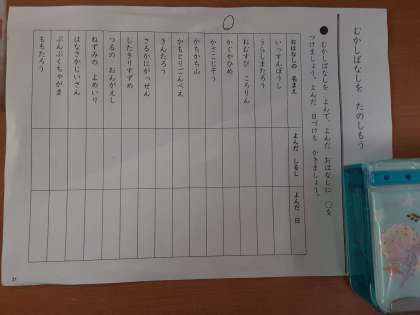 むかしばなしを たのしもう
●むかしばなしを よんで、よんだ おはなしに ○を
つけましょう。よんだ 日づけも かきましょう。
おはなしの 名まえ よんだ しるし よんだ 日
いっすんぼうし
うらしまたろう
おむすび ころりん
かぐやひめ
かさこじぞう
かちかち山
かもとりごんべえ
きんたろう
さるかにがっせん
したきりすずめ
つるの おんがえし
ねずみの よめいり
はなさかじいさん
ぶんぶくちゃがま
ももたろう